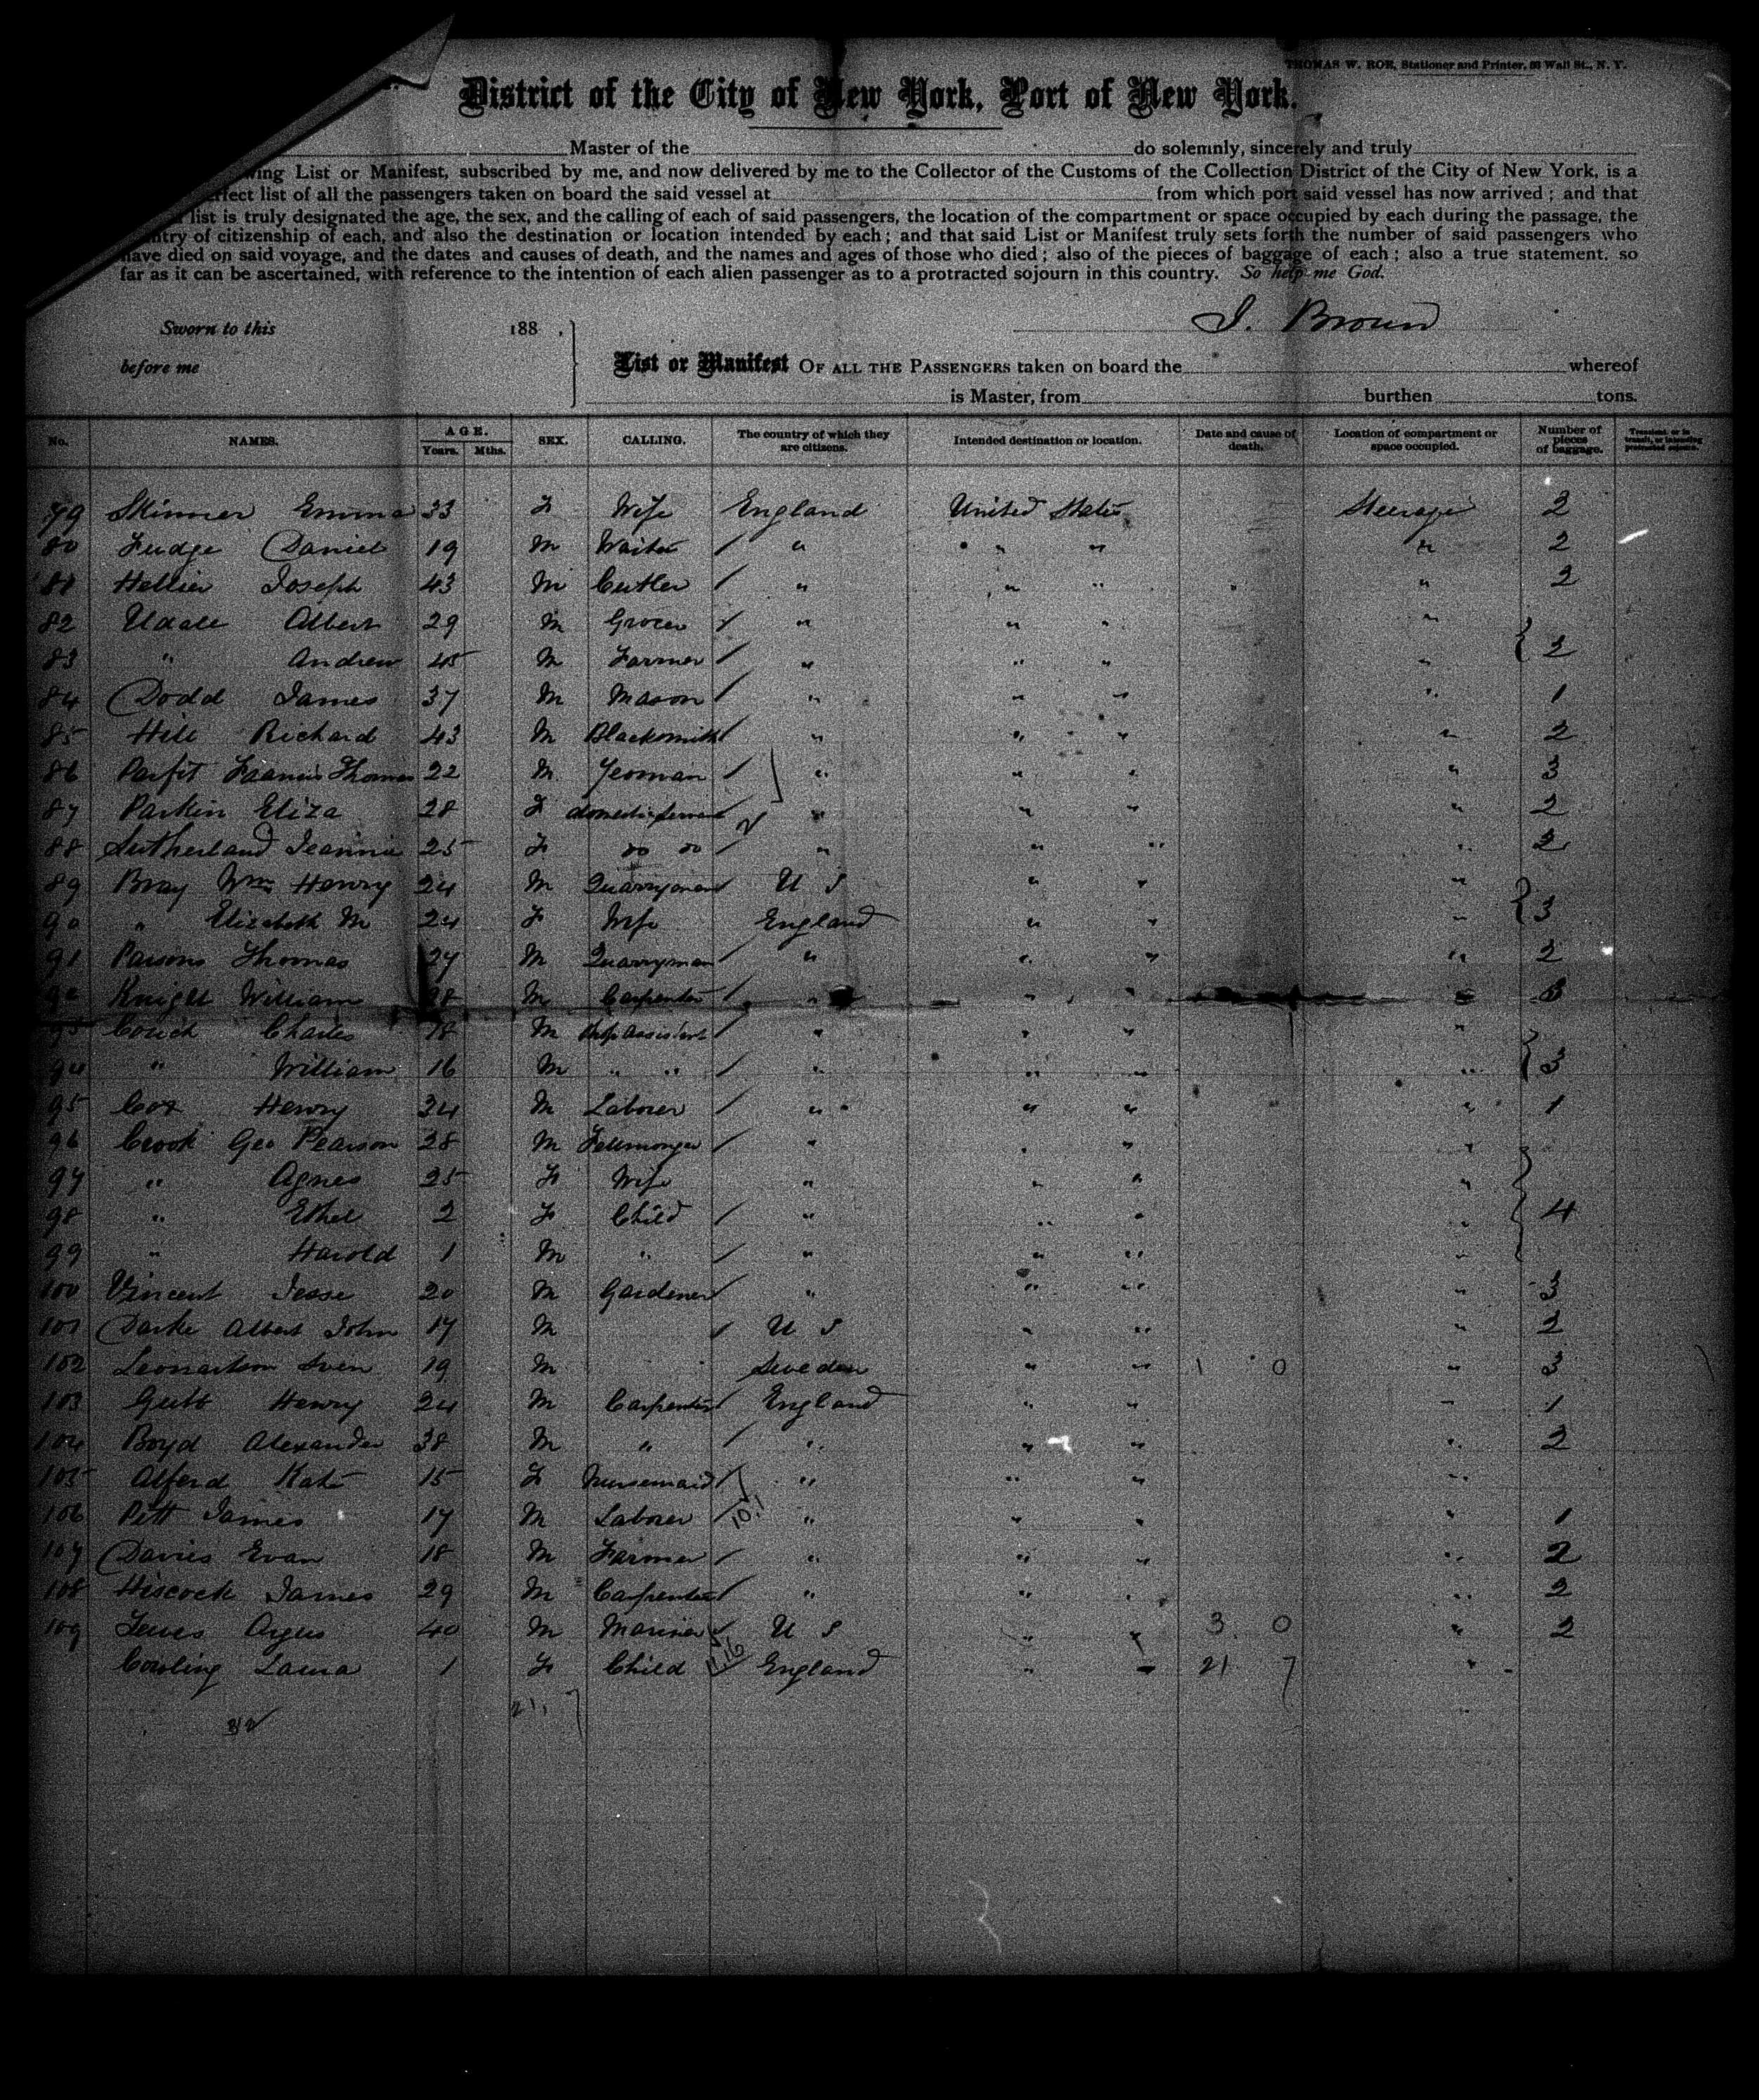 THOMAS W. ROE, Stationer and Printer, 93 Wall St., N. Y.
District of the City of New York, Port of New York.
Master of the do solemnly, sincerely and truly
wing List or Manifest, subscribed by me, and now delivered by me to the Collector of the Customs of the Collection District of the City of New York, is a
erfect list of all the passengers taken on board the said vessel at from which port said vessel has now arrived; and that
list is truly designated the age, the sex, and the calling of each of said passengers, the location of the compartment or space occupied by each during the passage, the
ntry of citizenship of each, and also the destination or location intended by each; and that said List or Manifest truly sets forth the number of said passengers who
have died on said voyage, and the dates and causes of death, and the names and ages of those who died; also of the pieces of baggage of each; also a true statement, so
far as it can be ascertained, with reference to the intention of each alien passenger as to a protracted sojourn in this country. So help me God.
Sworn to this 188 .
I. Brown
before me
List or Manifest OF ALL THE PASSENGERS taken on board the whereof
is Master, from burthen tons.
No. NAMES. AGE. Years. Mths. SEX. CALLING. The country of which they are citizens. Intended destination or location. Date and cause of death. Location of compartment or space occupied. Number of pieces of baggage. Transient, or in transit, or intending protracted sojourn.
79 Skinner Emma 33 F Wife England United States Steerage 2
80 Fudge Daniel 19 M Waiter / " " " " 2
81 Hellier Joseph 43 M Cutler / " " " " 2
82 Udall Albert 29 M Grocer / " " " "
83 " Andrew 45 M Farmer / " " " " 2
84 Dodd James 37 M Mason / " " " " 1
85 Hill Richard 43 M Blacksmith / " " " " 2
86 Parfit Francis Thomas 22 M Yeoman / " " " " 3
87 Parkin Eliza 28 F domestic servant " " " " 2
88 Sutherland Jeannie 25 F do do / " " " " 2
89 Bray Wm Henry 24 M Quarryman U S " " "
90 " Elizabeth M 24 F Wife England " " " 3
91 Parsons Thomas 27 M Quarryman / " " " " 2
92 Knight William 28 M Carpenter / " " " " 3
93 Couch Charles 18 M Shop Assistant / " " " "
94 " William 16 M " " / " " " " 3
95 Cox Henry 34 M Laborer / " " " " 1
96 Crook Geo Pearson 28 M Fellmonger / " " " "
97 " Agnes 25 F Wife " " " "
98 " Ethel 2 F Child / " " " " 4
99 " Harold 1 M " / " " " "
100 Vincent Jesse 20 M Gardener / " " " " 3
101 Darke Albert John 17 M / U S " " " 2
102 Sven 19 M Sweden " " 1 0 " 3
103 Henry 24 M Carpenter / England " " " 1
104 Boyd Alexander 38 M " / " " " " 2
105 Alford Kate 15 F Nursemaid / " " " "
106 Pitt James 17 M Laborer / 10! " " " " 1
107 Davies Evan 18 M Farmer / " " " " 2
108 Hiscock James 29 M Carpenter / " " " " 2
109 40 M Mariner U S " " 3 0 " 2
Cowling Laura 1 F Child England " " 21 7 "
32
21 7